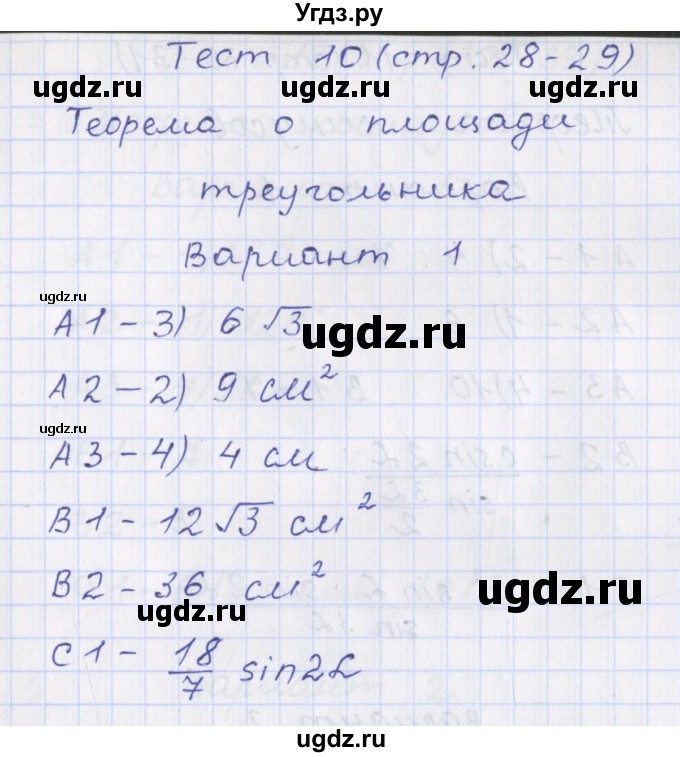 Угдз.ру
Тест 10 (стр. 28-29)
ugdz.ru ugdz.ru
Теорема о площади
треугольника
Вариант 1
ugdz.ru
А1 - 3) 6√3
ugdz.ru
А2 - 2) 9 см²
ugdz.ru
А3 - 4) 4 см
В1 - 12√3 см²
В2 - 36 см²
ugdz.ru ugdz.ru
С1 - 18/7 sin2α
ugdz.ru